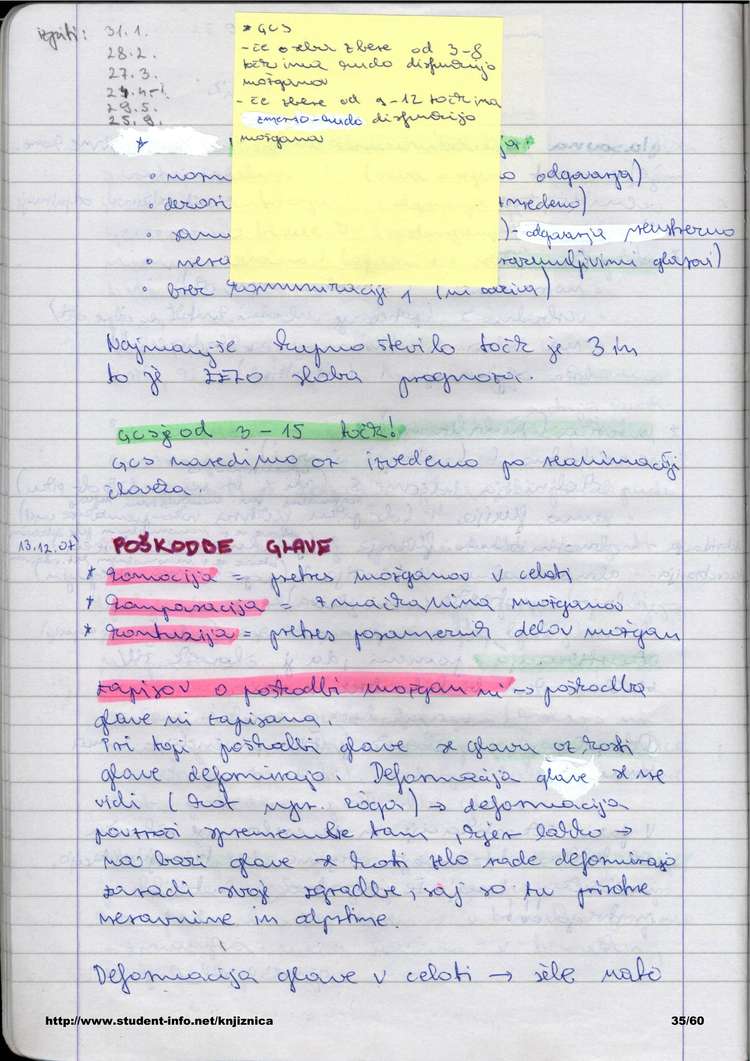 izpiti: 31.1.
28.2.
27.3.
24.4.
29.5.
25.9.
* GCS
- če oseba zbere od 3-8
točk ima hudo disfunkcijo
možganov
- če zbere od 9-12 točk ima
zmerno-hudo disfunkcijo
možganov
*
• odgovarja)
•
• - odgovarja neustrezno
• nerazumljivimi glasovi)
• brez komunikacije 1 (ni odziva)
Najmanjše skupno število točk je 3 in
to je ZELO slaba prognoza.
GCS je od 3-15 točk!
GCS naredimo oz izvedemo po reanimaciji
človeka.
13.12.07 POŠKODBE GLAVE
* komocija = pretres možganov v celoti
* kompresacija = zmečkanina možganov
* kontuzija = pretres posameznih delov možgan
zapisov o poškodbi možgan ni → poškodba
glave ni zapisana.
Pri topi poškodbi glave se glava oz kosti
glave deformirajo. Deformacija glave se ne
vidi (kot npr. žoga) → deformacija
povzroči spremembe tam, kjer lahko →
na bazi glave se kosti zelo rade deformirajo
zaradi svoje zgradbe, saj so tu prisotne
neravnine in odprtine.
Deformacija glave v celoti → šele nato
http://www.student-info.net/knjiznica 35/60